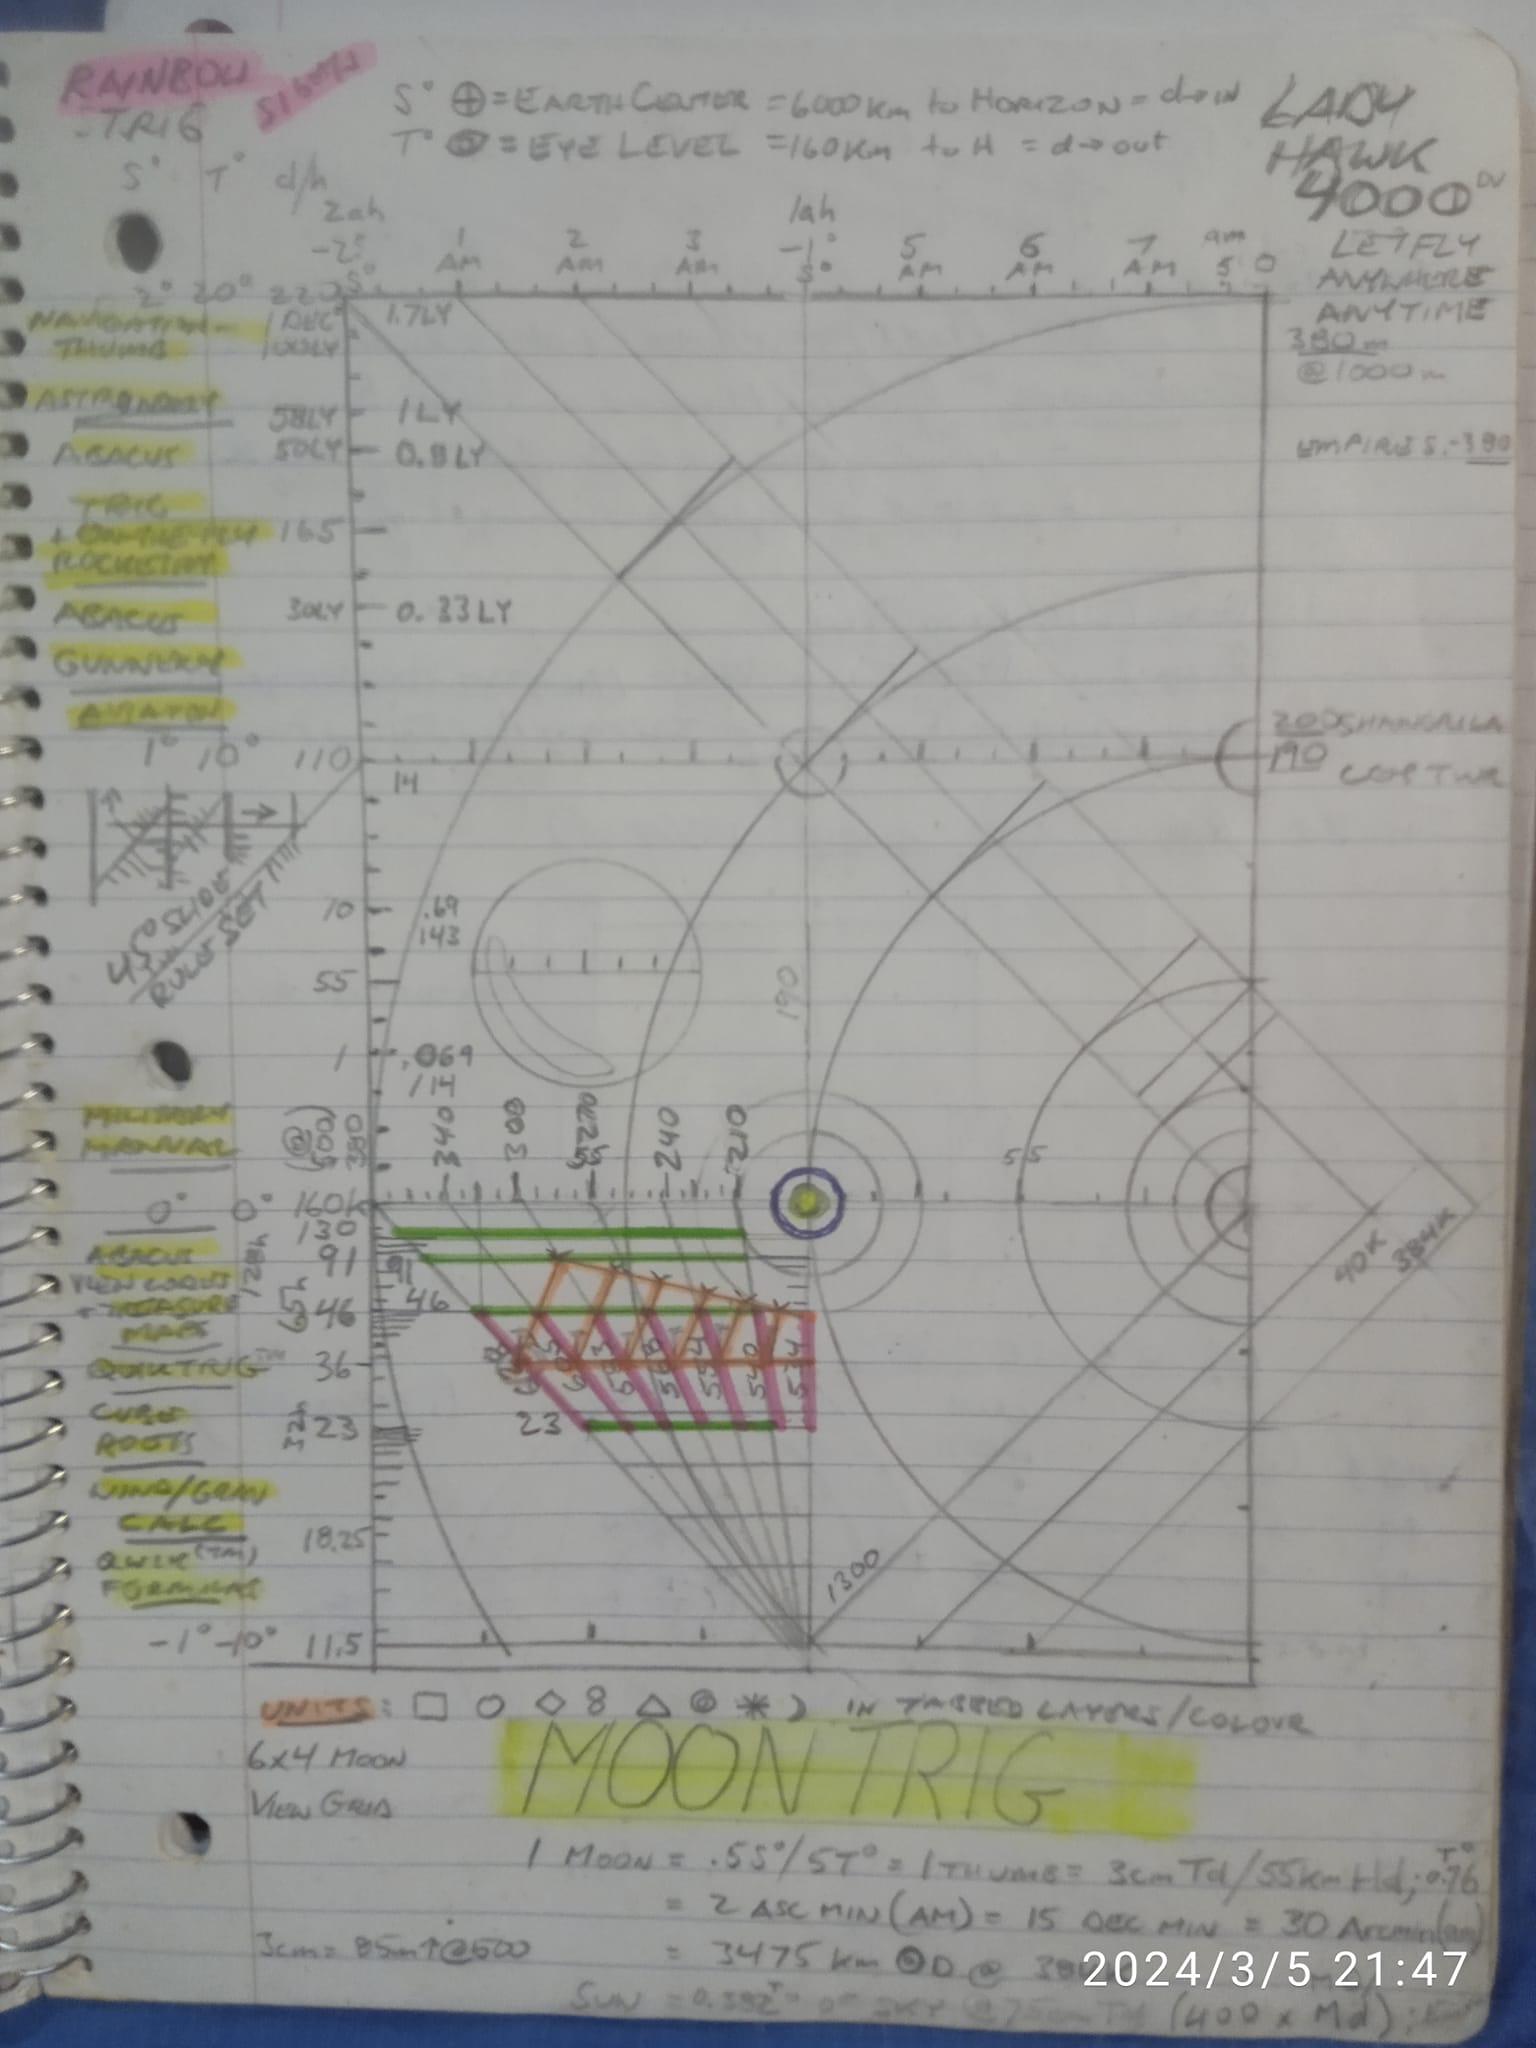 RAINBOW
-TRIG
S° ⊕ = EARTH CENTER = 6000 Km to HORIZON = d→in
T° = EYE LEVEL = 160 Km to H = d→out
LADY
HAWK
4000
LET FLY
ANYWHERE
ANYTIME
380 m
@1000 m
UMPIRES.-380
S° T° d/h
2ah
1ah
-2° 1 2 3 -1° 5 6 7 am 0
S° AM AM AM S° AM AM AM
2° 20° 220
NAVIGATION-
THUMB
1 DEC
100LY
1.7LY
ASTRONOMY
58LY 1LY
ABACUS
50LY 0.8LY
TRIG
+ ON-THE-FLY
ROCKETRY
165
ABACUS
30LY 0.33LY
GUNNERY
AVIATON
1° 10° 110
14
200 SHANGRILA
190
45° SLIDE
RULE SET
10 .69
143
55
190
1 .069
/14
MILITARY
MANUAL
(@
500)
380
340 300 270 240 210
55
0° 0° 160K
130
ABACUS
128h
91 91
VIEW
MEASURE
65h
46 46
MAX
QUIKTRIG
36
CUBE
ROOTS
32h
23 23
554 540 534
40K
384K
WIND/GRAV
CALC
QWIK (TM)
FORMULAS
18.25
1300
-1° -10° 11.5
UNITS: □ ○ ◇ 8 △ ◎ ✳ ) IN TABBED LAYERS/COLOUR
6x4 MOON
VIEW GRID
MOON TRIG
1 MOON = .5S°/5T° = 1 THUMB = 3cm Td/55km Hd; 0.76 T°
= 2 ASC MIN (AM) = 15 DEC MIN = 30 Arcmin
3cm = 85m↑@500
= 3475 km ⊙D @
SUN = (400 x Md);
2024/3/5 21:47